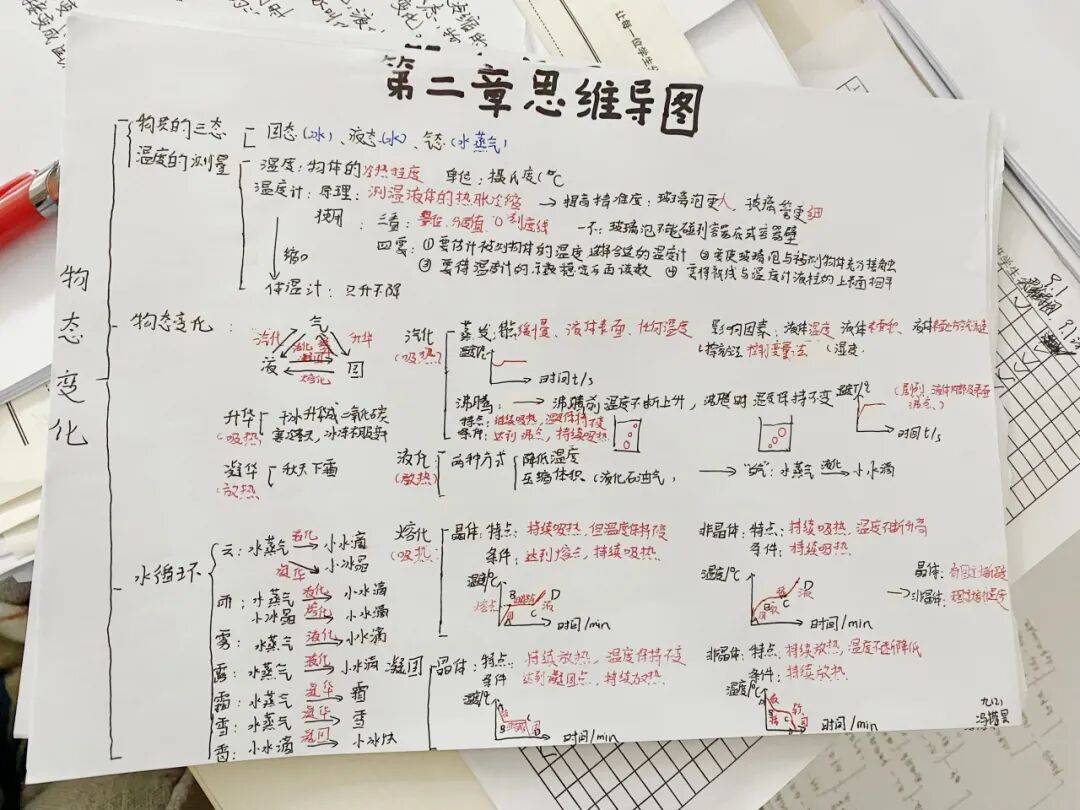 第二章思维导图
物态变化
物质的三态 固态(冰)、液态(水)、气态(水蒸气)
温度的测量
温度：物体的冷热程度 单位：摄氏度(℃
温度计：原理：测温液体的热胀冷缩 → 提高精准度：玻璃泡更大，玻璃管更细
使用 三看：量程、分度值、0刻度线 一不：玻璃泡不能碰到容器底或容器壁
四要：①要估计被测物体的温度选择合适的温度计 ②要使玻璃泡与被测物体充分接触
③要待温度计的示数稳定后再读数 ④要使视线与温度计液柱的上表面相平
缩口
体温计：只升不降
物态变化：
气
汽化 液化 升华
液 固
熔化
汽化(吸热)
蒸发：缓慢、液体表面、任何温度 影响因素：液体温度 液体表面积
控制变量法 湿度
温度/℃
时间t/s
沸腾： → 沸腾前温度不断上升，沸腾时温度保持不变
特点：继续吸热，温度保持不变
条件：达到沸点，持续吸热
温度/℃
时间t/s
升华(吸热)
干冰升华成二氧化碳
凝华(放热)
秋天下霜
液化(放热)
两种方式 降低温度
压缩体积。(液化石油气)
→ "白气"：水蒸气 液化→ 小水滴
水循环
云：水蒸气 液化→ 小水滴
凝华→ 小冰晶
雨：水蒸气 液化→ 小水滴
小冰晶 熔化→ 小水滴
雾：水蒸气 液化→ 小水滴
露：水蒸气 液化→ 小水滴
霜：水蒸气 凝华→ 霜
雪：水蒸气 凝华→ 雪
雹：小水滴 凝固→ 小冰块
熔化(吸热)
晶体：特点：持续吸热，但温度保持不变
条件：达到熔点，持续吸热
温度/℃
熔点
B C D 液
时间/min
非晶体：特点：持续吸热，温度不断升高
条件：持续吸热
温度/℃
B C D
时间/min
晶体：有固定熔点
→ 非晶体：
凝固
晶体：特点：持续放热，温度保持不变
条件 达到凝固点，持续放热
温度/℃
B C
时间/min
非晶体：特点、持续放热，温度不断降低
条件：持续放热
温度/℃
时间/min